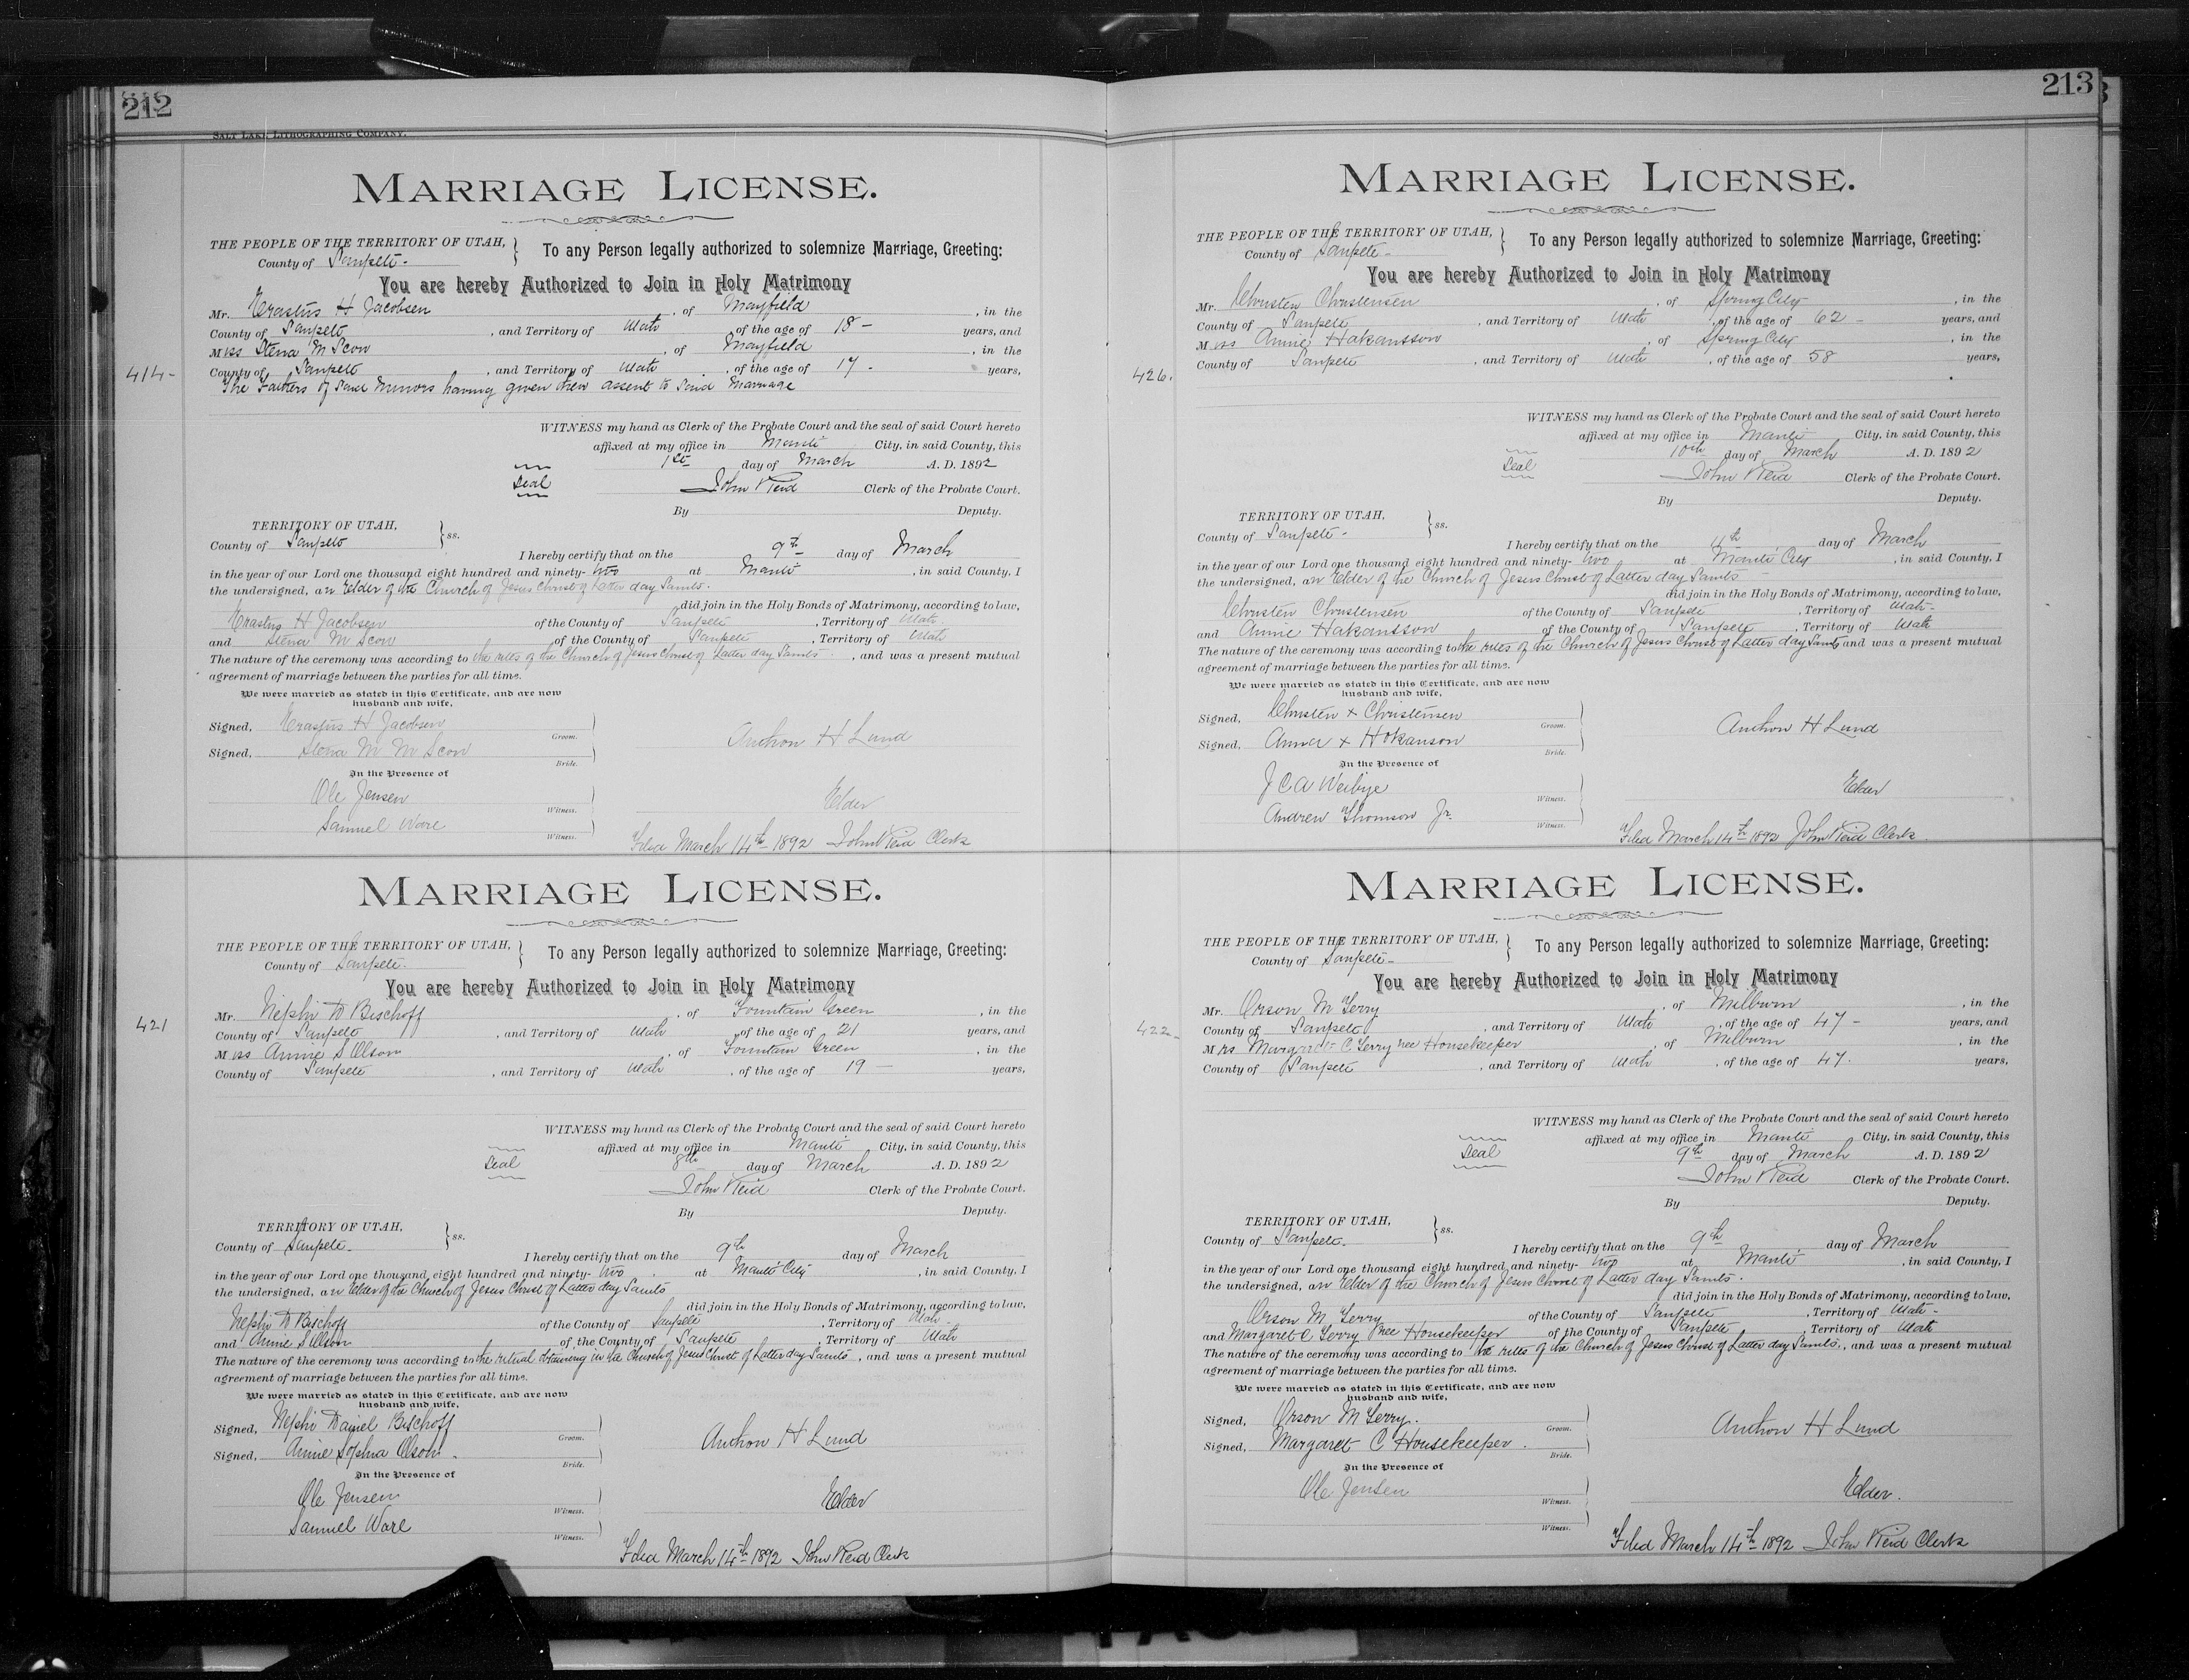 212
SALT LAKE LITHOGRAPHING COMPANY.
MARRIAGE LICENSE.
THE PEOPLE OF THE TERRITORY OF UTAH, } To any Person legally authorized to solemnize Marriage, Greeting:
County of Sanpete.
You are hereby Authorized to Join in Holy Matrimony
Mr. Erastus H Jacobsen, of Mayfield, in the
County of Sanpete, and Territory of Utah, of the age of 18 - years, and
Miss Stena M Scow, of Mayfield, in the
414- County of Sanpete, and Territory of Utah, of the age of 17 - years,
The Fathers of said Minors having given their assent to said Marriage
WITNESS my hand as Clerk of the Probate Court and the seal of said Court hereto
affixed at my office in Manti City, in said County, this
1st day of March A. D. 1892
Seal John Reid Clerk of the Probate Court.
By Deputy.
TERRITORY OF UTAH, } ss.
County of Sanpete
I hereby certify that on the 9th day of March
in the year of our Lord one thousand eight hundred and ninety-two at Manti, in said County, I
the undersigned, an Elder of the Church of Jesus Christ of Latter day Saints.
did join in the Holy Bonds of Matrimony, according to law,
Erastus H Jacobsen of the County of Sanpete, Territory of Utah.
and Stena M Scow of the County of Sanpete, Territory of Utah
The nature of the ceremony was according to the rites of the Church of Jesus Christ of Latter day Saints, and was a present mutual
agreement of marriage between the parties for all time.
We were married as stated in this Certificate, and are now
husband and wife,
Signed, Erastus H Jacobsen Groom.
Anthon H Lund
Signed, Stena M M Scow Bride.
In the Presence of
Ole Jensen Witness. Elder
Samuel Ware Witness.
Filed March 14th 1892 John Reid Clerk
MARRIAGE LICENSE.
THE PEOPLE OF THE TERRITORY OF UTAH, } To any Person legally authorized to solemnize Marriage, Greeting:
County of Sanpete.
You are hereby Authorized to Join in Holy Matrimony
Mr. Nephi D Bischoff, of Fountain Green, in the
421 County of Sanpete, and Territory of Utah, of the age of 21 years, and
Miss Annie S Olson, of Fountain Green, in the
County of Sanpete, and Territory of Utah, of the age of 19 - years,
WITNESS my hand as Clerk of the Probate Court and the seal of said Court hereto
affixed at my office in Manti City, in said County, this
Seal 8th day of March A. D. 1892
John Reid Clerk of the Probate Court.
By Deputy.
TERRITORY OF UTAH, } ss.
County of Sanpete.
I hereby certify that on the 9th day of March
in the year of our Lord one thousand eight hundred and ninety-two at Manti City, in said County, I
the undersigned, an Elder of the Church of Jesus Christ of Latter day Saints
did join in the Holy Bonds of Matrimony, according to law,
Nephi D Bischoff of the County of Sanpete, Territory of Utah.
and Annie S Olson of the County of Sanpete, Territory of Utah
The nature of the ceremony was according to the ritual obtaining in the Church of Jesus Christ of Latter day Saints, and was a present mutual
agreement of marriage between the parties for all time.
We were married as stated in this Certificate, and are now
husband and wife,
Signed, Nephi Daniel Bischoff Groom.
Anthon H Lund
Signed, Annie Sophia Olson. Bride.
In the Presence of
Ole Jensen Witness. Elder
Samuel Ware Witness.
Filed March 14th 1892 John Reid Clerk
213
MARRIAGE LICENSE.
THE PEOPLE OF THE TERRITORY OF UTAH, } To any Person legally authorized to solemnize Marriage, Greeting:
County of Sanpete-
You are hereby Authorized to Join in Holy Matrimony
Mr. Christen Christensen, of Spring City, in the
County of Sanpete, and Territory of Utah, of the age of 62 - years, and
Miss Annie Hakansson, of Spring City, in the
426. County of Sanpete, and Territory of Utah, of the age of 58 years,
WITNESS my hand as Clerk of the Probate Court and the seal of said Court hereto
affixed at my office in Manti City, in said County, this
Seal 10th day of March A. D. 1892
John Reid Clerk of the Probate Court.
By Deputy.
TERRITORY OF UTAH, } ss.
County of Sanpete-
I hereby certify that on the 11th day of March
in the year of our Lord one thousand eight hundred and ninety-two at Manti City, in said County, I
the undersigned, an Elder of the Church of Jesus Christ of Latter day Saints
did join in the Holy Bonds of Matrimony, according to law,
Christen Christensen of the County of Sanpete, Territory of Utah-
and Annie Hakansson of the County of Sanpete, Territory of Utah
The nature of the ceremony was according to the rites of the Church of Jesus Christ of Latter day Saints and was a present mutual
agreement of marriage between the parties for all time.
We were married as stated in this Certificate, and are now
husband and wife,
Signed, Christen x Christensen Groom.
Anthon H Lund
Signed, Anna x Hokanson Bride.
In the Presence of
J C A Weibye Witness. Elder
Andrew Thomson Jr. Witness.
Filed March 14th 1892 John Reid Clerk.
MARRIAGE LICENSE.
THE PEOPLE OF THE TERRITORY OF UTAH, } To any Person legally authorized to solemnize Marriage, Greeting:
County of Sanpete-
You are hereby Authorized to Join in Holy Matrimony
Mr. Orson M Terry, of Milburn, in the
422- County of Sanpete, and Territory of Utah, of the age of 47 - years, and
Mrs Margaret C. Terry nee Housekeeper, of Milburn, in the
County of Sanpete, and Territory of Utah, of the age of 47. years,
WITNESS my hand as Clerk of the Probate Court and the seal of said Court hereto
affixed at my office in Manti City, in said County, this
Seal 9th day of March A. D. 1892
John Reid Clerk of the Probate Court.
By Deputy.
TERRITORY OF UTAH, } ss.
County of Sanpete.
I hereby certify that on the 9th day of March
in the year of our Lord one thousand eight hundred and ninety-two at Manti, in said County, I
the undersigned, an Elder of the Church of Jesus Christ of Latter day Saints.
did join in the Holy Bonds of Matrimony, according to law,
Orson M Terry of the County of Sanpete, Territory of Utah-
and Margaret C Terry nee Housekeeper of the County of Sanpete, Territory of Utah
The nature of the ceremony was according to the rites of the Church of Jesus Christ of Latter day Saints, and was a present mutual
agreement of marriage between the parties for all time.
We were married as stated in this Certificate, and are now
husband and wife,
Signed, Orson M Terry. Groom.
Anthon H Lund
Signed, Margaret C Housekeeper. Bride.
In the Presence of
Ole Jensen Witness. Elder.
Witness.
Filed March 14th 1892 John Reid Clerk